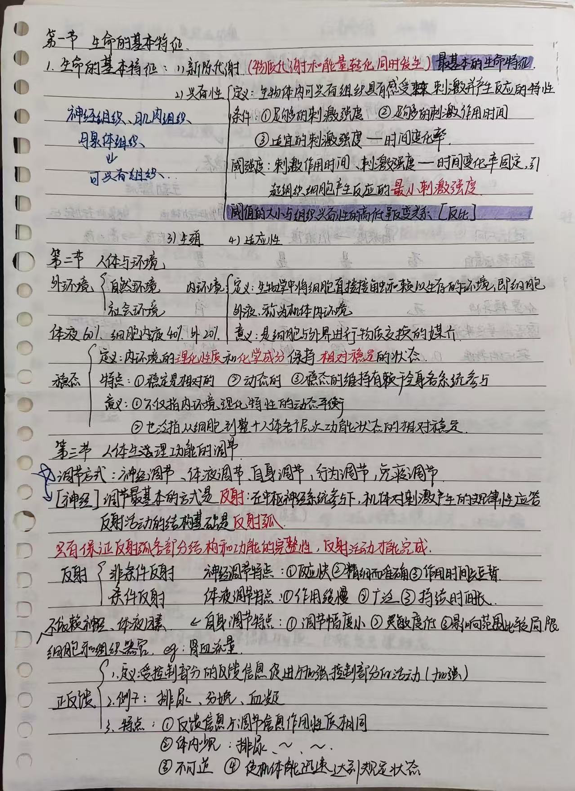 第一节 生命的基本特征
1. 生命的基本特征：1) 新陈代谢（物质代谢和能量转化同时发生）最基本的生命特征
2) 兴奋性 定义：生物体内可兴奋组织具有感受 刺激并产生反应的特性
神经组织、肌肉组织、 条件 ①足够的刺激强度 ②足够的刺激作用时间
腺体组织 ③适宜的刺激强度—时间变化率
⇓ 阈强度：刺激作用时间、刺激强度—时间变化率固定，引
可兴奋组织 起组织细胞产生反应的最小刺激强度
阈值的大小与组织兴奋性的高低呈反变关系 [反比]
3) 生殖 4) 适应性
第二节 人体与环境
外环境 自然环境 内环境 定义：生物学中将细胞直接接触和赖以生存的环境，即细胞
社会环境 外液，称为机体内环境
体液60% 细胞内液40% 外20% 意义：是细胞与外界进行物质交换的媒介
定义：内环境的理化性质和化学成分保持相对稳定的状态
稳态 特点：①稳定是相对的 ②动态的 ③稳态的维持有赖于全身各系统参与
意义：①不仅指内环境理化特性的动态平衡
②也泛指从细胞到整个人体各个层次功能状态的相对稳定
第三节 人体生理功能的调节
调节方式：神经调节、体液调节、自身调节，行为调节，免疫调节
[神经] 调节最基本的方式是反射：在中枢神经系统参与下，机体对刺激产生的规律性应答
反射活动的结构基础是反射弧
只有保证反射弧各部分结构和功能的完整性，反射活动才能完成
反射 非条件反射 神经调节特点：①反应快 ②精细而准确 ③作用时间短暂
条件反射 体液调节特点：①作用缓慢 ②广泛 ③持续时间长
不依赖神经、体液因素 ← 自身调节特点：①调节幅度小 ②灵敏度低 ③影响范围比较局限
细胞和组织器官 eg：胃血流量
1. 定义：受控制部分的反馈信息促进加强控制部分的活动（加强）
正反馈 2. 例子：排尿、分娩、血凝
3. 特点：①反馈信息与调节信息作用性质相同
②体内少见：排尿、~、~、
③不可逆 ④使机体能迅速达到规定状态